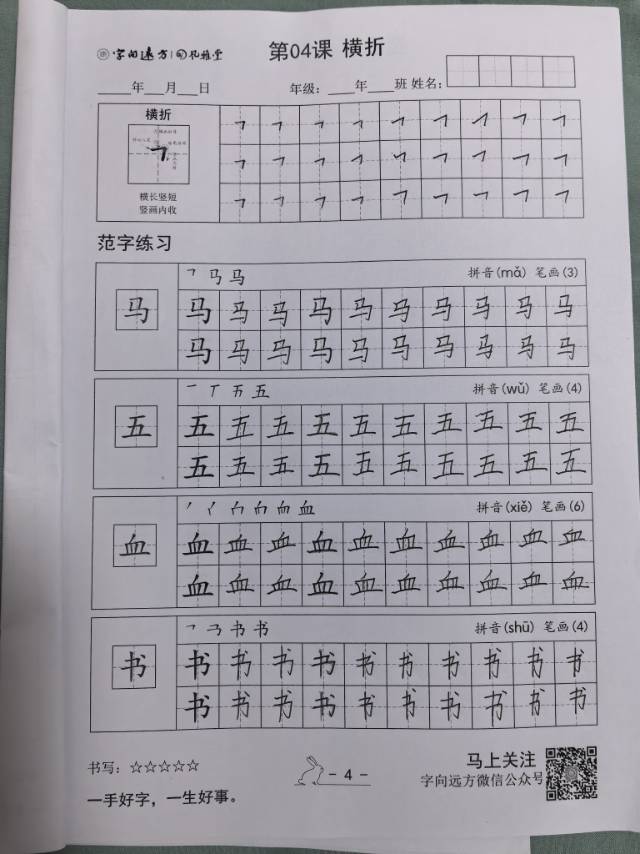 字向远方 | 风雅堂
第04课 横折
____年___月___日
年级：____年____班 姓名：
横折
横长竖短
竖画内收
范字练习
拼音(mǎ) 笔画(3)
马 马 马 马 马 马 马 马 马 马 马
马 马 马 马 马 马 马 马 马 马
五 拼音(wǔ) 笔画(4)
五 五 五 五 五 五 五 五 五 五 五
五 五 五 五 五 五 五 五 五 五
血 拼音(xiě) 笔画(6)
血 血 血 血 血 血 血 血 血 血 血
血 血 血 血 血 血 血 血 血 血
书 书 拼音(shū) 笔画(4)
书 书 书 书 书 书 书 书 书 书 书
书 书 书 书 书 书 书 书 书 书
书写：☆☆☆☆☆
- 4 -
马上关注
字向远方微信公众号
一手好字，一生好事。